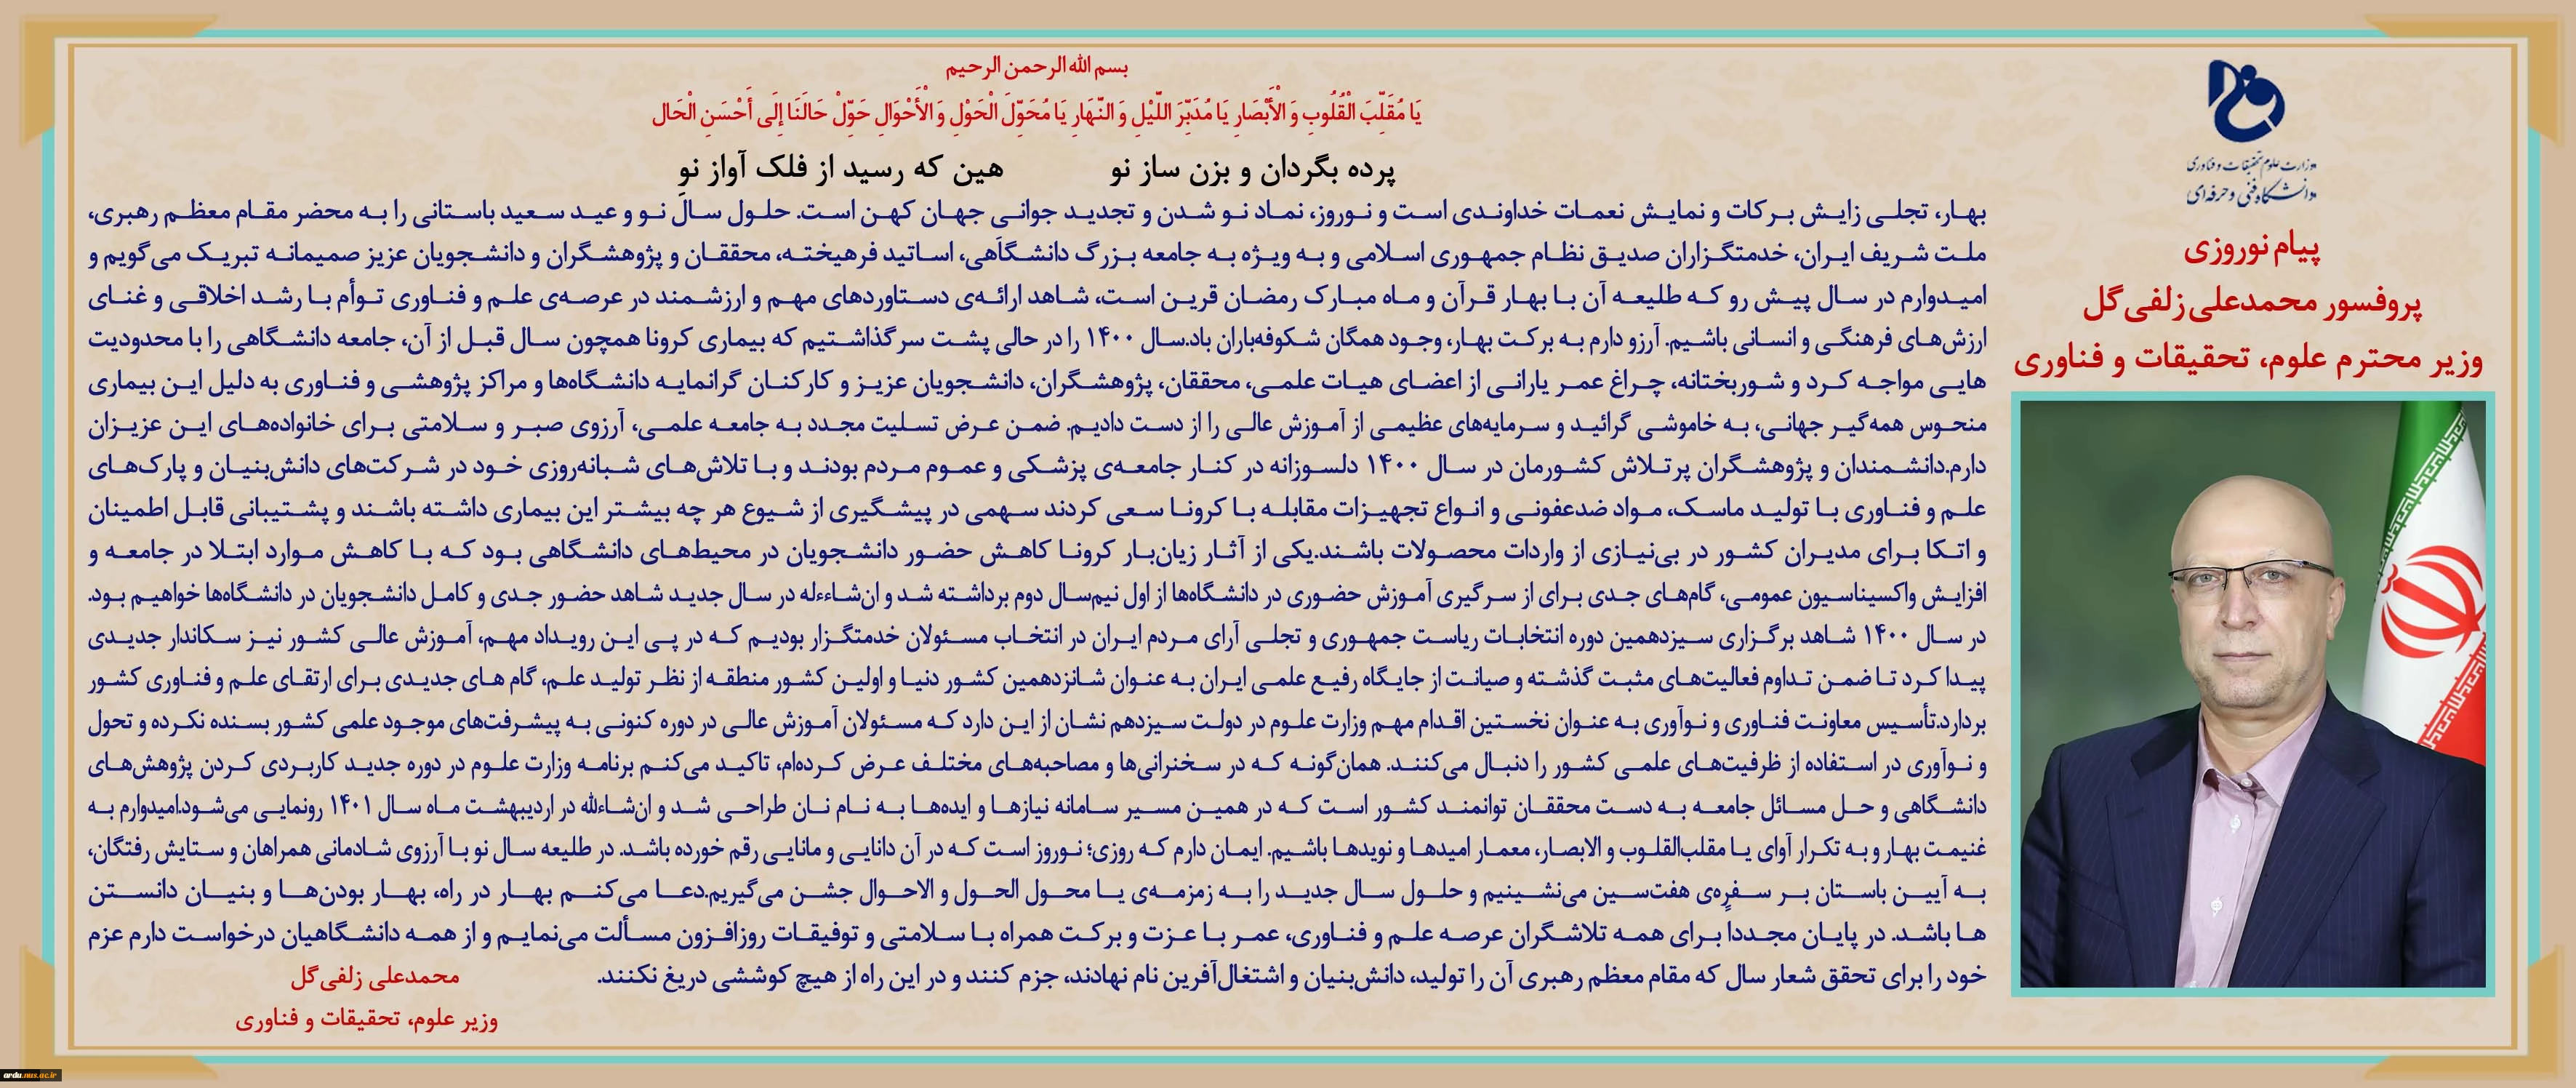 وزارت علوم تحقیقات و فناوری
دانشگاه فنی و حرفه‌ای
پیام نوروزی
پروفسور محمدعلی زلفی گل
وزیر محترم علوم، تحقیقات و فناوری
بسم الله الرحمن الرحیم
يَا مُقَلِّبَ الْقُلُوبِ وَ الْأَبْصَارِ يَا مُدَبِّرَ اللَّيْلِ وَ النَّهَارِ يَا مُحَوِّلَ الْحَوْلِ وَ الْأَحْوَالِ حَوِّلْ حَالَنَا إِلَى أَحْسَنِ الْحَال
پرده بگردان و بزن ساز نو هین که رسید از فلک آواز نو
بهار، تجلی زایش برکات و نمایش نعمات خداوندی است و نوروز، نماد نو شدن و تجدید جوانی جهان کهن است. حلول سال نو و عید سعید باستانی را به محضر مقام معظم رهبری،
ملت شریف ایران، خدمتگزاران صدیق نظام جمهوری اسلامی و به ویژه به جامعه بزرگ دانشگاهی، اساتید فرهیخته، محققان و پژوهشگران و دانشجویان عزیز صمیمانه تبریک می‌گویم و
امیدوارم در سال پیش رو که طلیعه آن با بهار قرآن و ماه مبارک رمضان قرین است، شاهد ارائه‌ی دستاوردهای مهم و ارزشمند در عرصه‌ی علم و فناوری توأم با رشد اخلاقی و غنای
ارزش‌های فرهنگی و انسانی باشیم. آرزو دارم به برکت بهار، وجود همگان شکوفه‌باران باد.سال ۱۴۰۰ را در حالی پشت سر گذاشتیم که بیماری کرونا همچون سال قبل از آن، جامعه دانشگاهی را با محدودیت
هایی مواجه کرد و شوربختانه، چراغ عمر یارانی از اعضای هیات علمی، محققان، پژوهشگران، دانشجویان عزیز و کارکنان گرانمایه دانشگاه‌ها و مراکز پژوهشی و فناوری به دلیل این بیماری
منحوس همه‌گیر جهانی، به خاموشی گرائید و سرمایه‌های عظیمی از آموزش عالی را از دست دادیم. ضمن عرض تسلیت مجدد به جامعه علمی، آرزوی صبر و سلامتی برای خانواده‌های این عزیزان
دارم.دانشمندان و پژوهشگران پرتلاش کشورمان در سال ۱۴۰۰ دلسوزانه در کنار جامعه‌ی پزشکی و عموم مردم بودند و با تلاش‌های شبانه‌روزی خود در شرکت‌های دانش‌بنیان و پارک‌های
علم و فناوری با تولید ماسک، مواد ضدعفونی و انواع تجهیزات مقابله با کرونا سعی کردند سهمی در پیشگیری از شیوع هر چه بیشتر این بیماری داشته باشند و پشتیبانی قابل اطمینان
و اتکا برای مدیران کشور در بی‌نیازی از واردات محصولات باشند.یکی از آثار زیان‌بار کرونا کاهش حضور دانشجویان در محیط‌های دانشگاهی بود که با کاهش موارد ابتلا در جامعه و
افزایش واکسیناسیون عمومی، گام‌های جدی برای از سرگیری آموزش حضوری در دانشگاه‌ها از اول نیم‌سال دوم برداشته شد و ان‌شاءءله در سال جدید شاهد حضور جدی و کامل دانشجویان در دانشگاه‌ها خواهیم بود.
در سال ۱۴۰۰ شاهد برگزاری سیزدهمین دوره انتخابات ریاست جمهوری و تجلی آرای مردم ایران در انتخاب مسئولان خدمتگزار بودیم که در پی این رویداد مهم، آموزش عالی کشور نیز سکاندار جدیدی
پیدا کرد تا ضمن تداوم فعالیت‌های مثبت گذشته و صیانت از جایگاه رفیع علمی ایران به عنوان شانزدهمین کشور دنیا و اولین کشور منطقه از نظر تولید علم، گام های جدیدی برای ارتقای علم و فناوری کشور
بردارد.تأسیس معاونت فناوری و نوآوری به عنوان نخستین اقدام مهم وزارت علوم در دولت سیزدهم نشان از این دارد که مسئولان آموزش عالی در دوره کنونی به پیشرفت‌های موجود علمی کشور بسنده نکرده و تحول
و نوآوری در استفاده از ظرفیت‌های علمی کشور را دنبال می‌کنند. همان‌گونه که در سخنرانی‌ها و مصاحبه‌های مختلف عرض کرده‌ام، تاکید می‌کنم برنامه وزارت علوم در دوره جدید کاربردی کردن پژوهش‌های
دانشگاهی و حل مسائل جامعه به دست محققان توانمند کشور است که در همین مسیر سامانه نیازها و ایده‌ها به نام نان طراحی شد و ان‌شاءالله در اردیبهشت ماه سال ۱۴۰۱ رونمایی می‌شود.امیدوارم به
غنیمت بهار و به تکرار آوای یا مقلب‌القلوب و الابصار، معمار امیدها و نویدها باشیم. ایمان دارم که روزی؛ نوروز است که در آن دانایی و مانایی رقم خورده باشد. در طلیعه سال نو با آرزوی شادمانی همراهان و ستایش رفتگان،
به آیین باستان بر سفره‌ی هفت‌سین می‌نشینیم و حلول سال جدید را به زمزمه‌ی یا محول الحول و الاحوال جشن می‌گیریم.دعا می‌کنم بهار در راه، بهار بودن‌ها و بنیان دانستن
ها باشد. در پایان مجددا برای همه تلاشگران عرصه علم و فناوری، عمر با عزت و برکت همراه با سلامتی و توفیقات روزافزون مسألت می‌نمایم و از همه دانشگاهیان درخواست دارم عزم
خود را برای تحقق شعار سال که مقام معظم رهبری آن را تولید، دانش‌بنیان و اشتغال‌آفرین نام نهادند، جزم کنند و در این راه از هیچ کوششی دریغ نکنند.
محمدعلی زلفی گل
وزیر علوم، تحقیقات و فناوری
ardu.nus.ac.ir